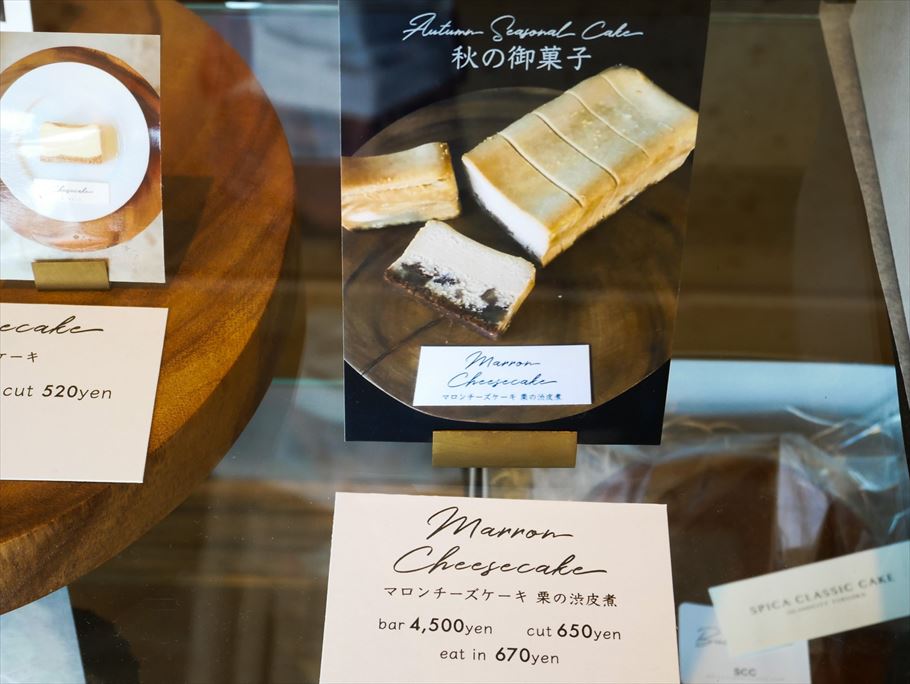 Cheesecake
ecake
ケーキ
cut 520yen
Autumn Seasonal Cake
秋の御菓子
Marron
Cheesecake
マロンチーズケーキ 栗の渋皮煮
Marron
Cheesecake
マロンチーズケーキ 栗の渋皮煮
bar 4,500yen cut 650yen
eat in 670yen
SPICA CLASSIC CAKE
SCC